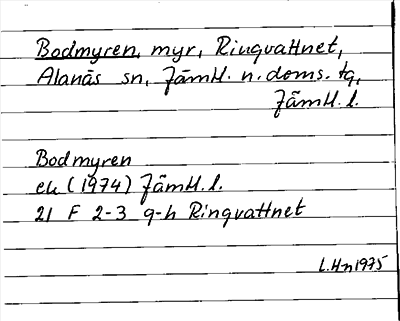 Bodmyren, myr, Ringvattnet,
Alanäs sn, Jämtl. n. doms. tg,
Jämtl. l.
Bodmyren
ek (1974) Jämtl. l.
21 F 2-3 g-h Ringvattnet
L.Hn 1975